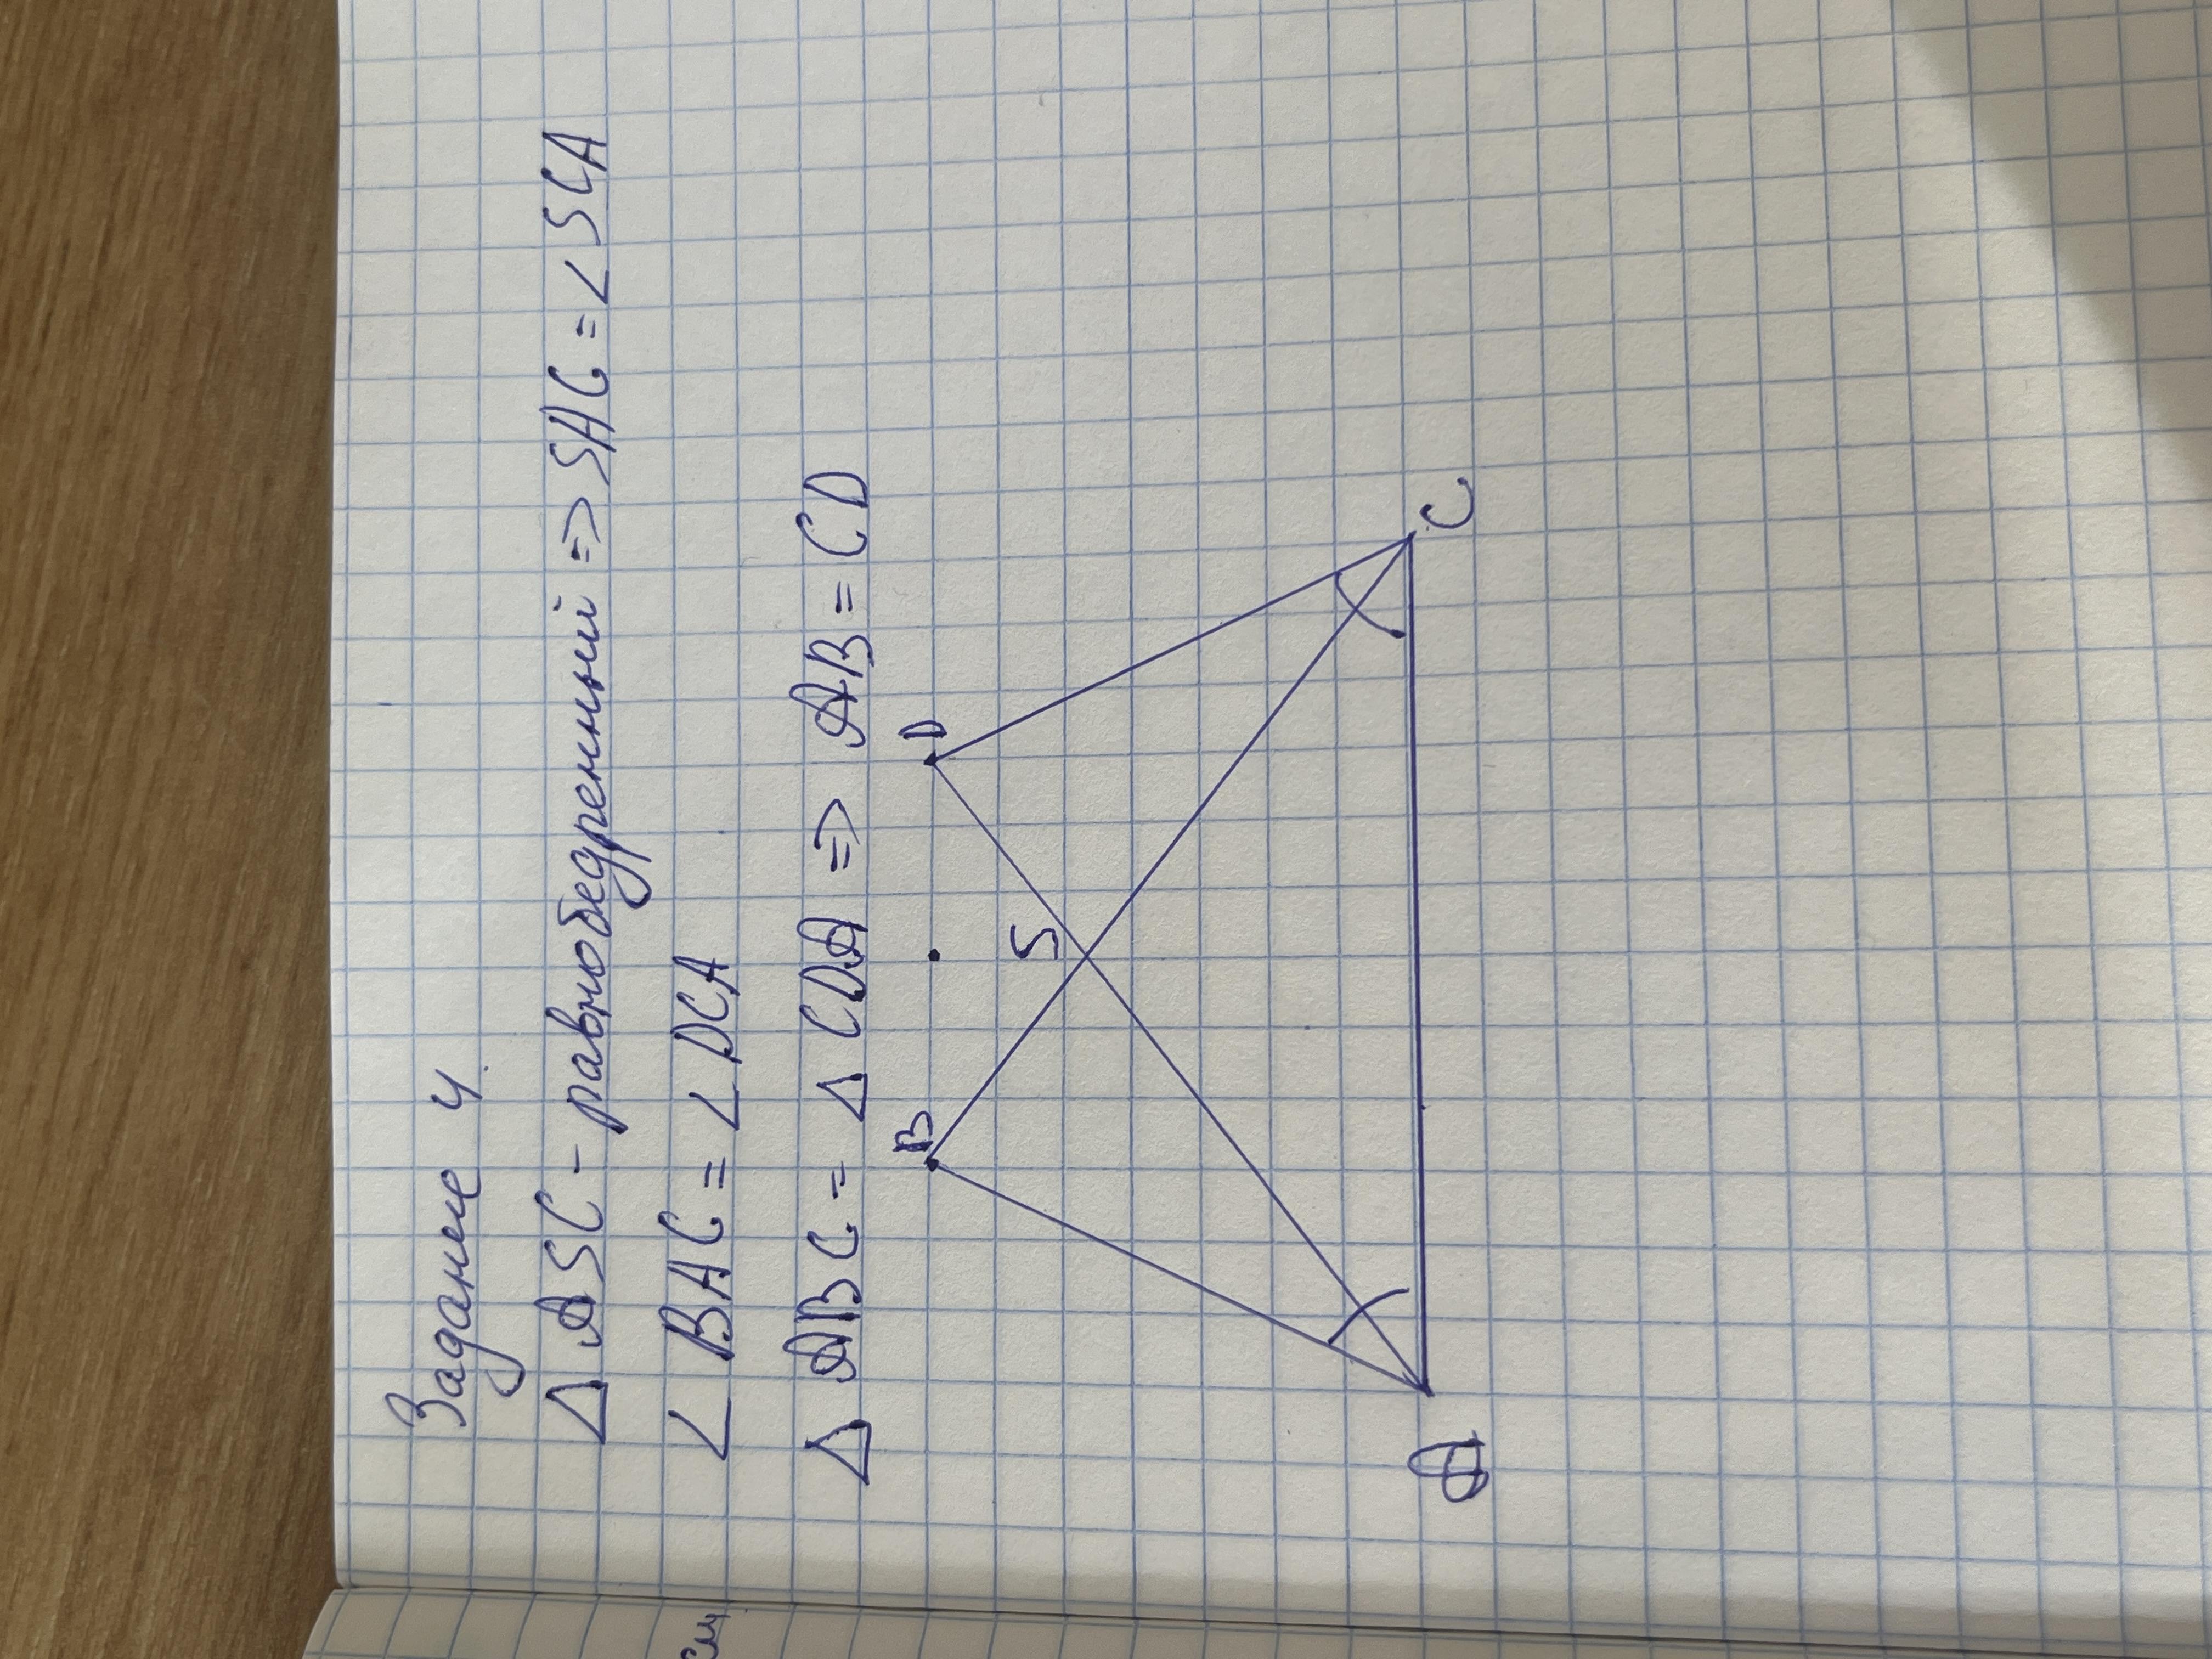 Задание 4.
Δ ASC - равнобедренный => SAC = ∠ SCA
∠ BAC = ∠ DCA
Δ ABC = Δ CDA => AB = CD
B D
S
A C
см